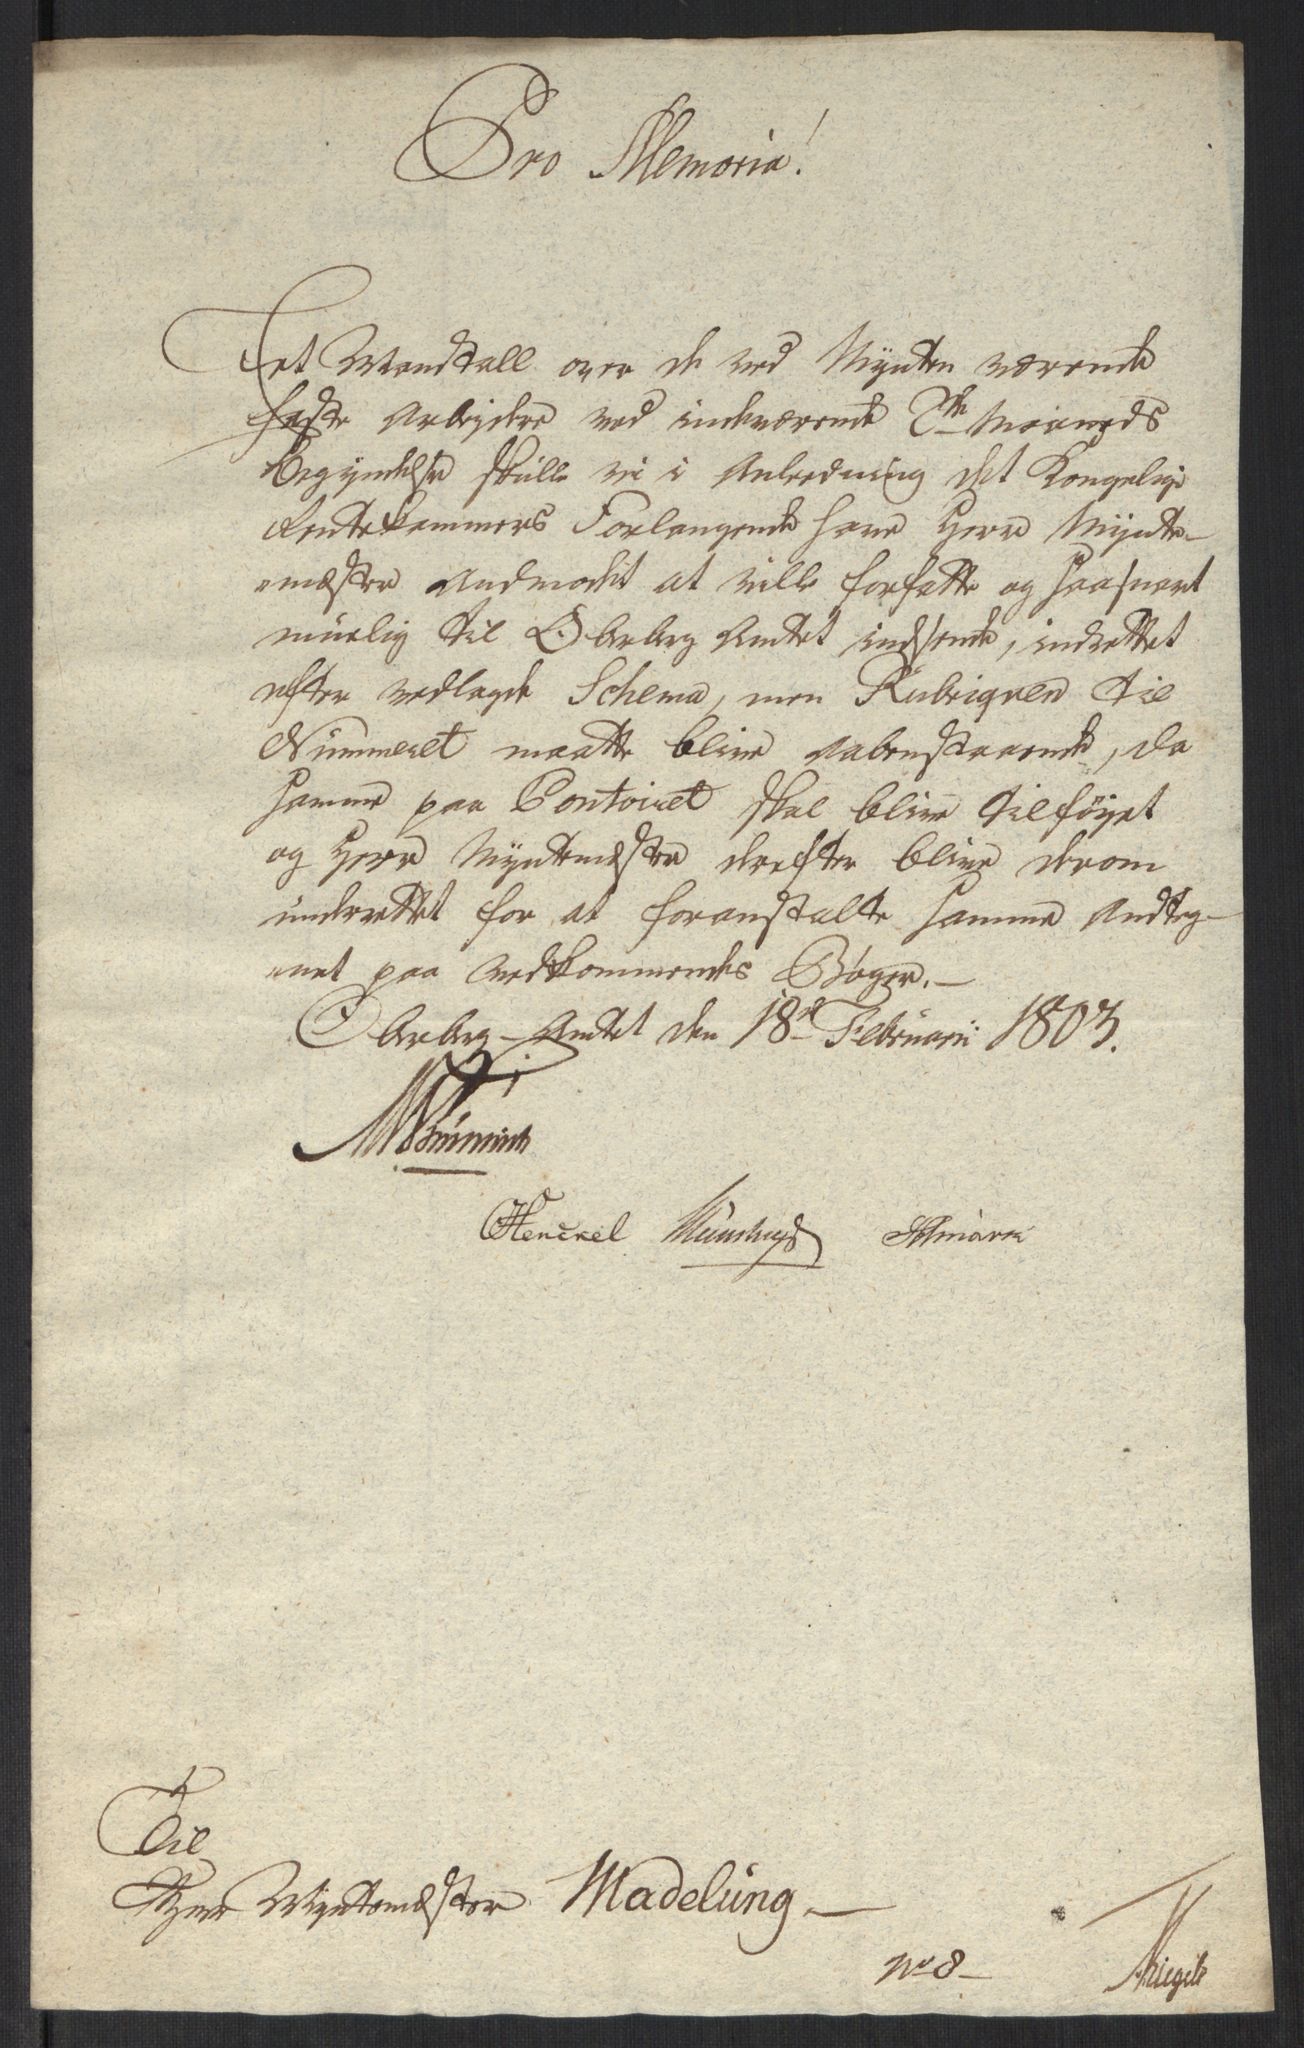 Pro Memoria!
Et Mandtall over de ved Mynten værende
faste Arbeydere ved indeværende Maaneds
Begyndelse skulle vi i Anledning det Kongelige
Rentekammers Forlangende have Herr Mynte-
mester Andmodet at ville forfatte og saasnart
mueligt til OberBerg Amtet indsende, indrettet
efter vedlagde Schema, men Rubriqven til
Nummeret maatte blive aabenstaaende, da
samme paa Contoiret skal blive tilføyet
og Herr Myntemester derefter blive derom
underrettet for at foranstalte samme Andteg-
net paa Vedkommendes Bøger.—
OberBerg-Amtet den 18de Februarii 1803.
Henckel
Til
Herr Myntemester Madelung.—
No 8—